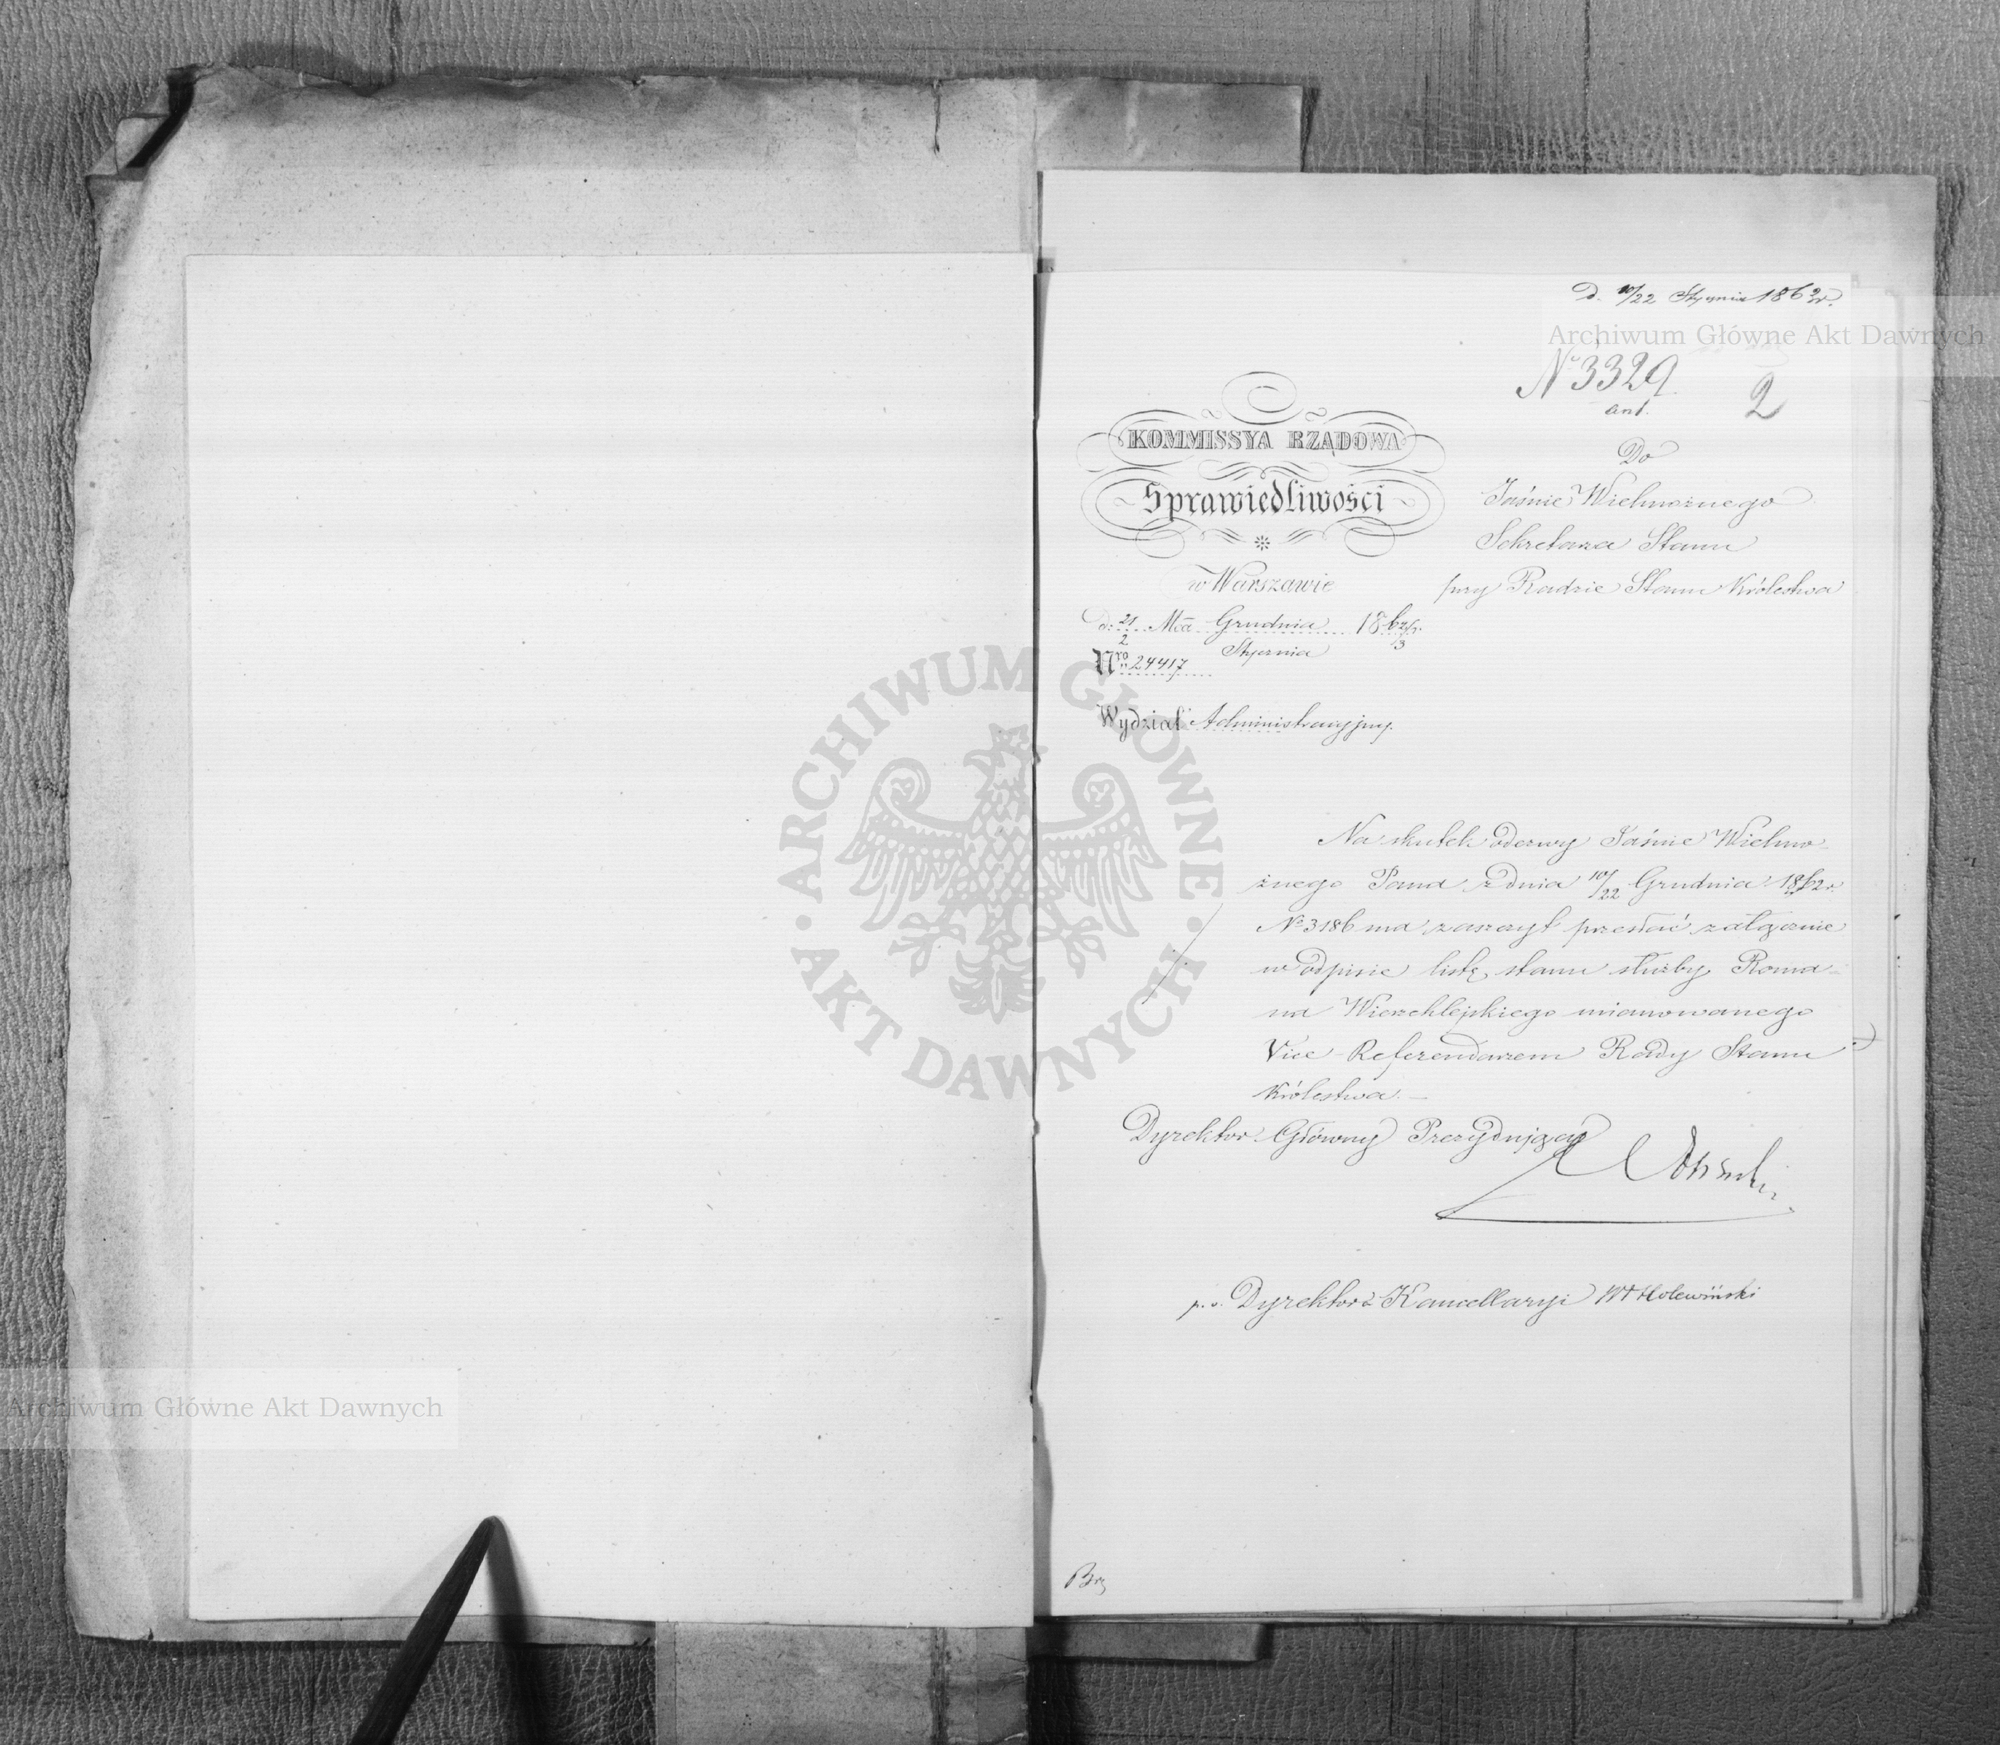 D. 10/22 Stycznia 1863 r.
Archiwum Główne Akt Dawnych
№ 3329
ant.
2
KOMMISSYA RZĄDOWA
Sprawiedliwości
w Warszawie
d: 21 Mca Grudnia 1862/3 r.
2 Stycznia
Nro 24417
Wydział Administracyjny.
Do
Jaśnie Wielmożnego
Sekretarza Stanu
przy Radzie Stanu Królestwa
Na skutek odezwy Jaśnie Wielmo-
żnego Pana z dnia 10/22 Grudnia 1862 r.
№ 3186 ma zaszczyt przesłać załącznie
w odpisie listę stanu służby Roma-
na Wierzchlejskiego mianowanego
Vice-Referendarzem Rady Stanu
Królestwa.—
Dyrektor Główny Prezydujący
p. o. Dyrektora Kancellaryi Wł Holewiński
ARCHIWUM GŁÓWNE AKT DAWNYCH
Archiwum Główne Akt Dawnych